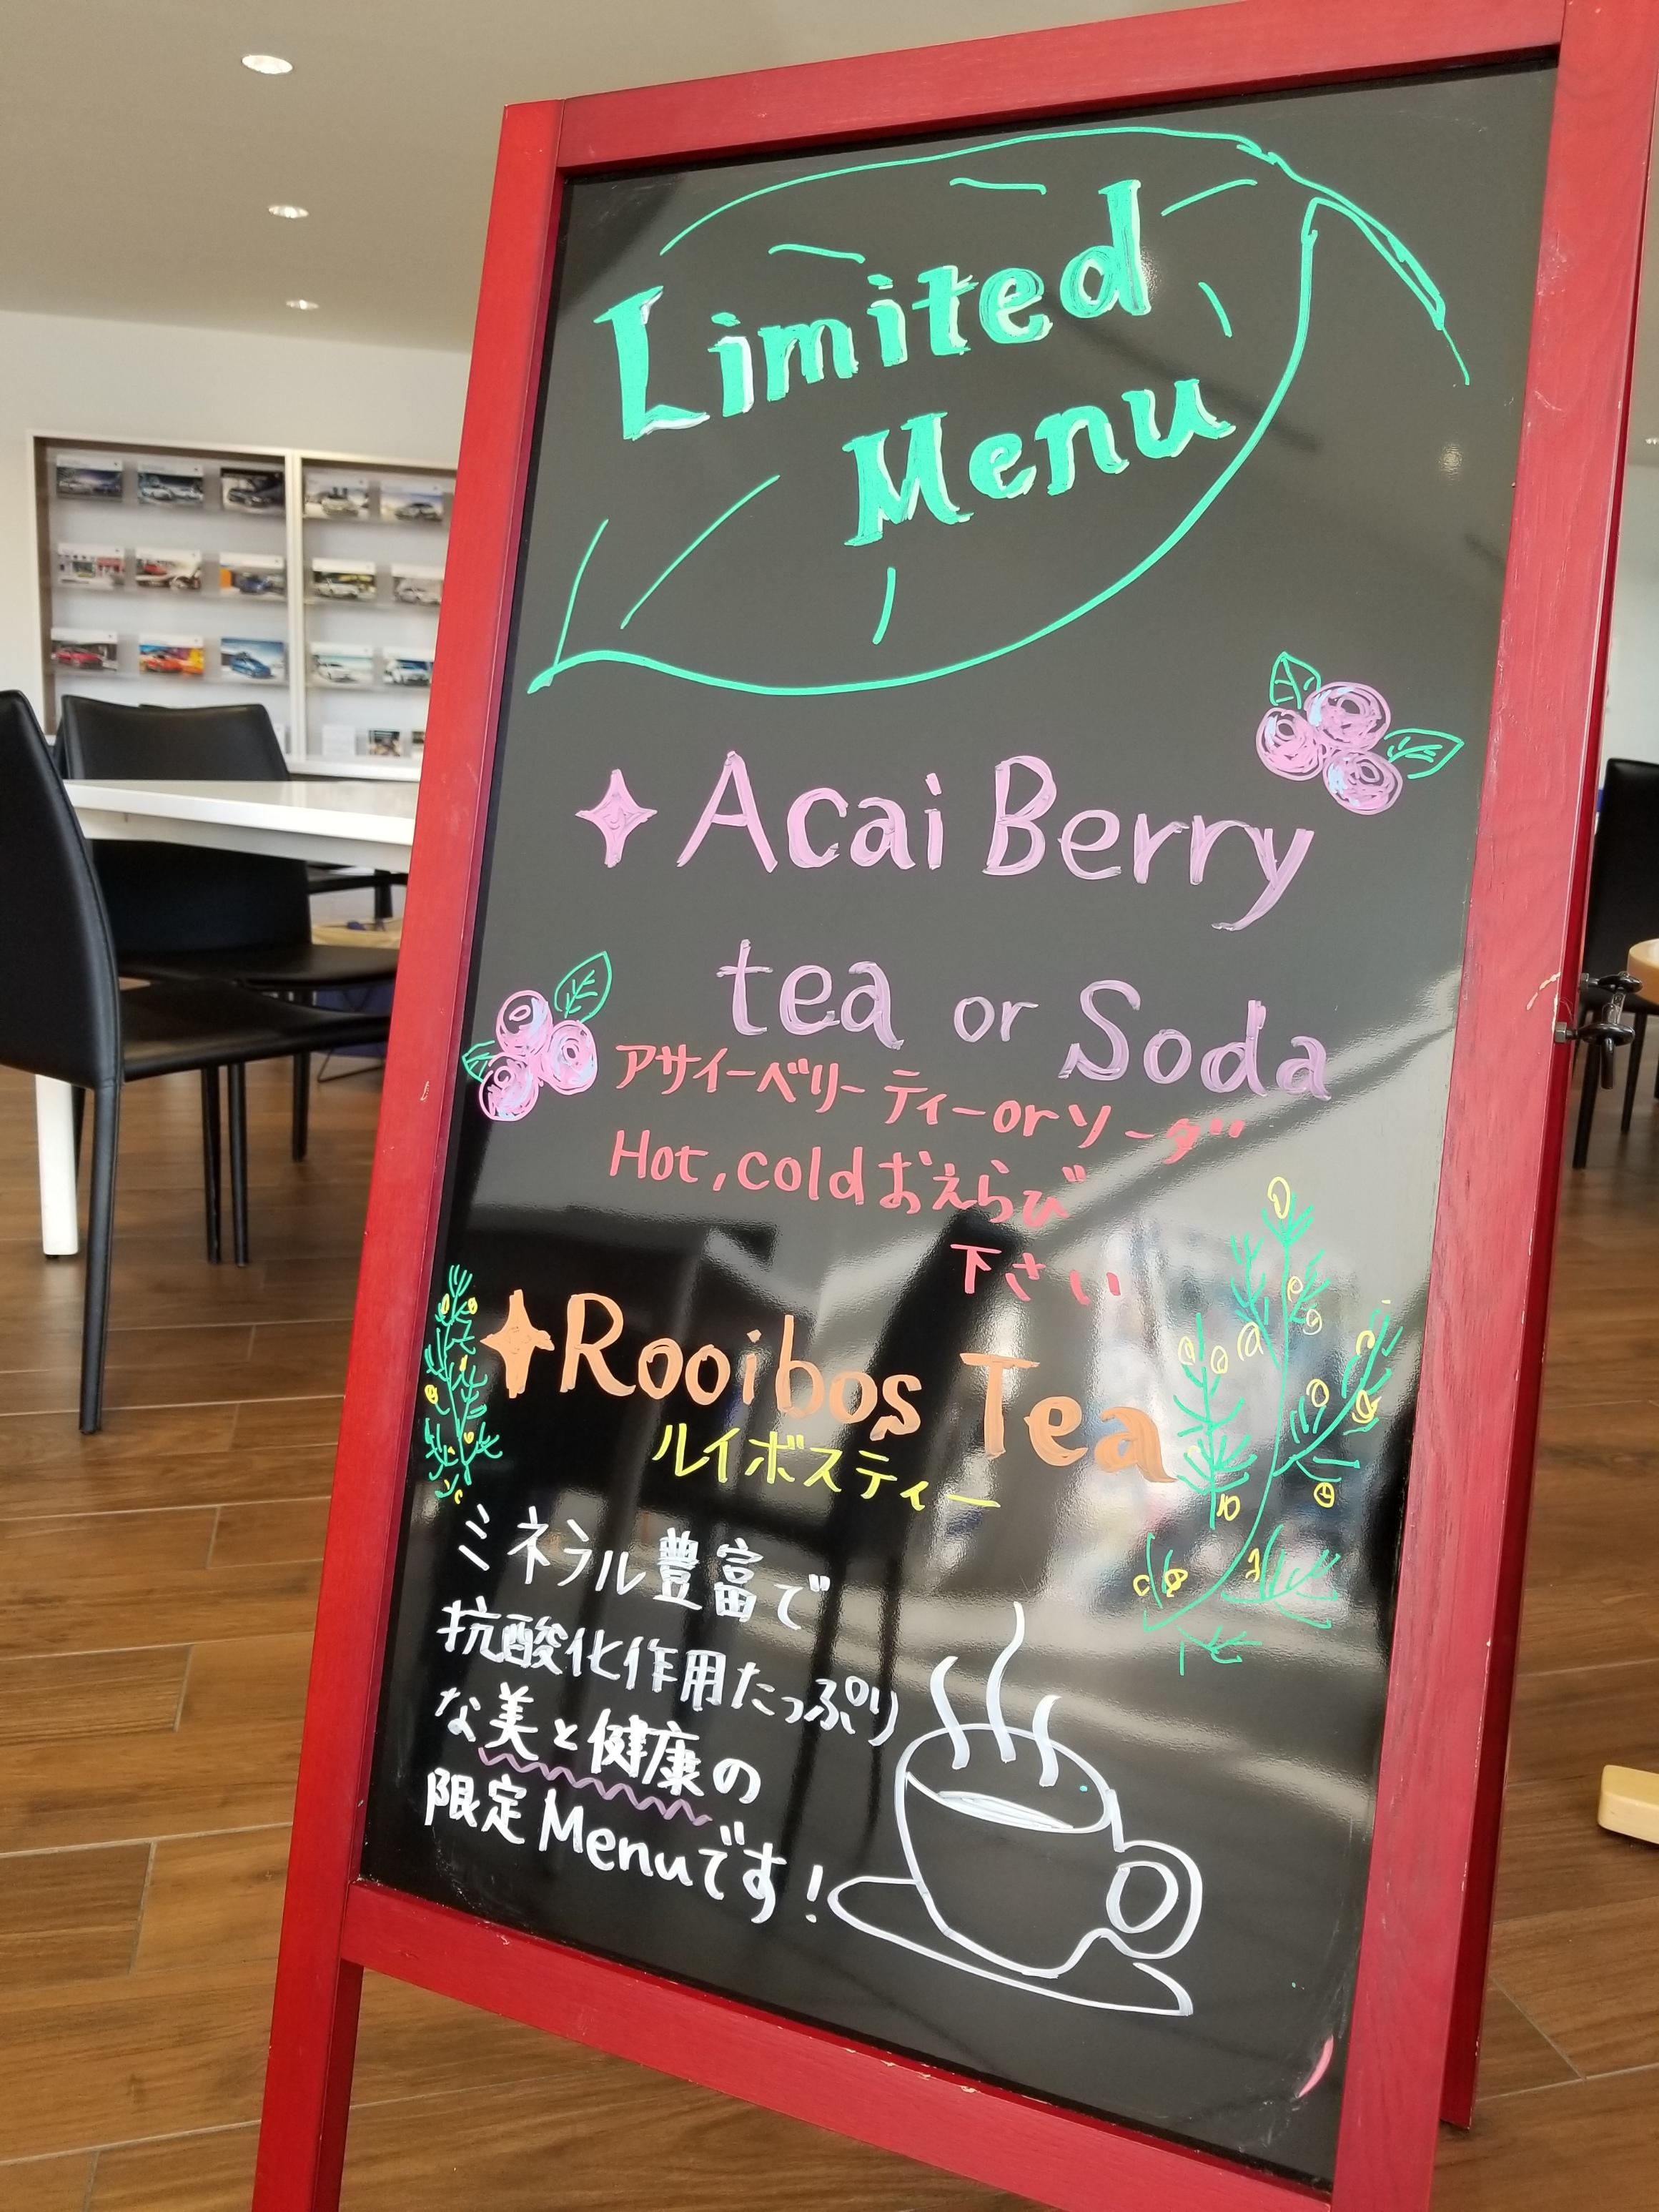 Limited
Menu
Acai Berry
tea or Soda
アサイーベリー ティー or ソーダ
Hot, cold おえらび
下さい
Rooibos Tea
ルイボスティー
ミネラル豊富で
抗酸化作用たっぷり
な美と健康の
限定Menuです!